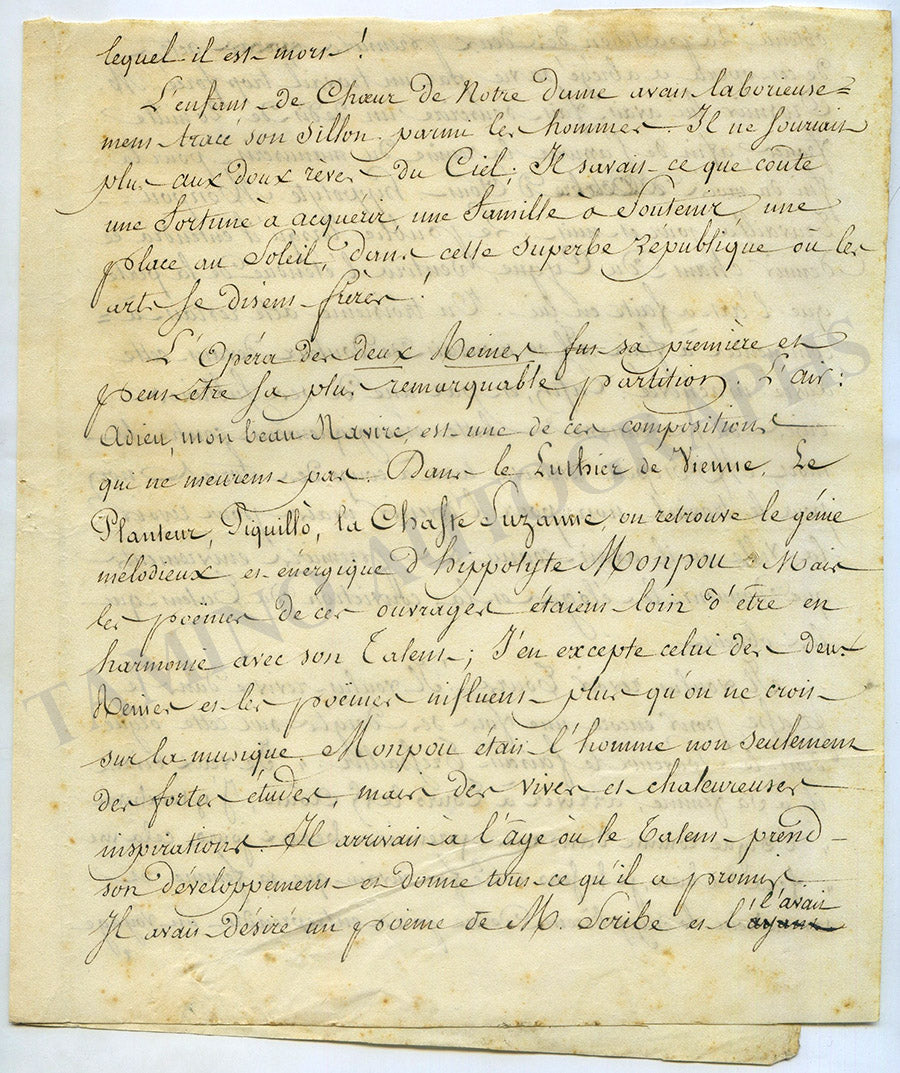 lequel il est mort !
L'enfant de Chœur de Notre dame avait laborieuse=
ment tracé son Sillon parmi les hommes. Il ne souriait
plus aux doux reves du Ciel; Il savait ce que coûte
une Fortune à acquérir, une Famille à Soutenir, une
place au Soleil dans cette Superbe République où les
arts se disent frères !
L'Opéra des deux Reines fut sa première et
peut être sa plus remarquable partition. L'air :
Adieu mon beau Navire, est une de ces compositions
qui ne meurent pas. Dans le Luthier de Vienne, Le
Planteur, Piquillo, la Chaste Suzanne, on retrouve le génie
mélodieux et énergique d'hippolyte Monpou. Mais
les poëmes de ces ouvrages étaient loin d'être en
harmonie avec son Talent; J'en excepte celui des deux
Reines et les poëmes influent plus qu'on ne croit
sur la musique. Monpou était l'homme non seulement
des fortes études, mais des vives et chaleureuses
inspirations. Il arrivait à l'âge où le Talent prend
son developpement et donne tout ce qu'il a promis
Il avait désiré un poëme de M. Scribe et l'ayant l'avait
TAMINO AUTOGRAPHS